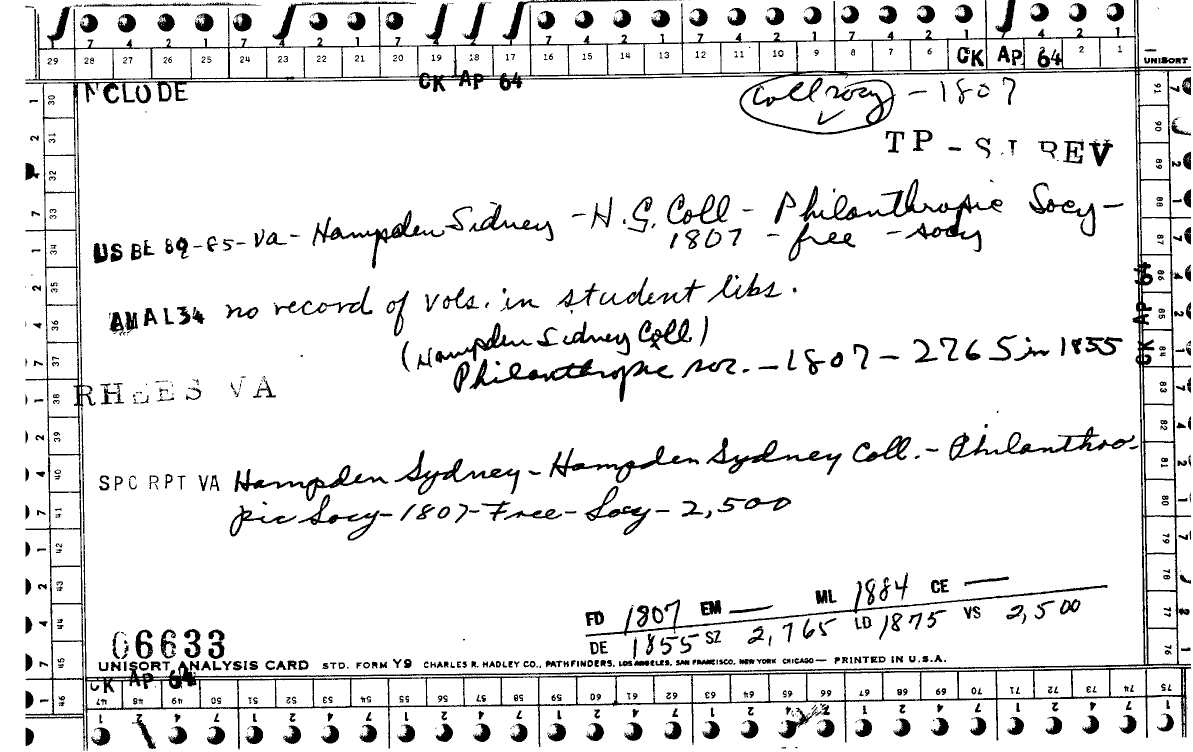 7 4 2 1 7 4 2 1 7 4 2 1 7 4 2 1 7 4 2 1 7 4 2 1
29 28 27 26 25 24 23 22 21 20 19 18 17 16 15 14 13 12 11 10 9 8 7 6 CK AP 64 2 1
UNISORT
INCLUDE CK AP 64 Coll socy - 1807
TP - SJ REV
US BE 89-85-Va- Hampden Sidney - H.S. Coll - Philanthropic Socy-
1807 - free - socy
AM AL34 no record of vols. in student libs.
(Hampden Sidney Coll)
Philanthropic soc. - 1807 - 2765 in 1855
RHEES VA
SPC RPT VA Hampden Sydney - Hampden Sydney Coll. - Philanthro-
pic Socy - 1807 - Free - Socy - 2,500
FD 1807 EM — ML 1884 CE —
DE 1855 SZ 2,765 LD 1875 VS 2,500
06633
UNISORT ANALYSIS CARD STD. FORM Y9 CHARLES R. HADLEY CO., PATHFINDERS, LOS ANGELES, SAN FRANCISCO, NEW YORK CHICAGO — PRINTED IN U.S.A.
CK AP 64
47 48 49 50 51 52 53 54 55 56 57 58 59 60 61 62 63 64 65 66 67 68 69 70 71 72 73 74 75
CK AP 64